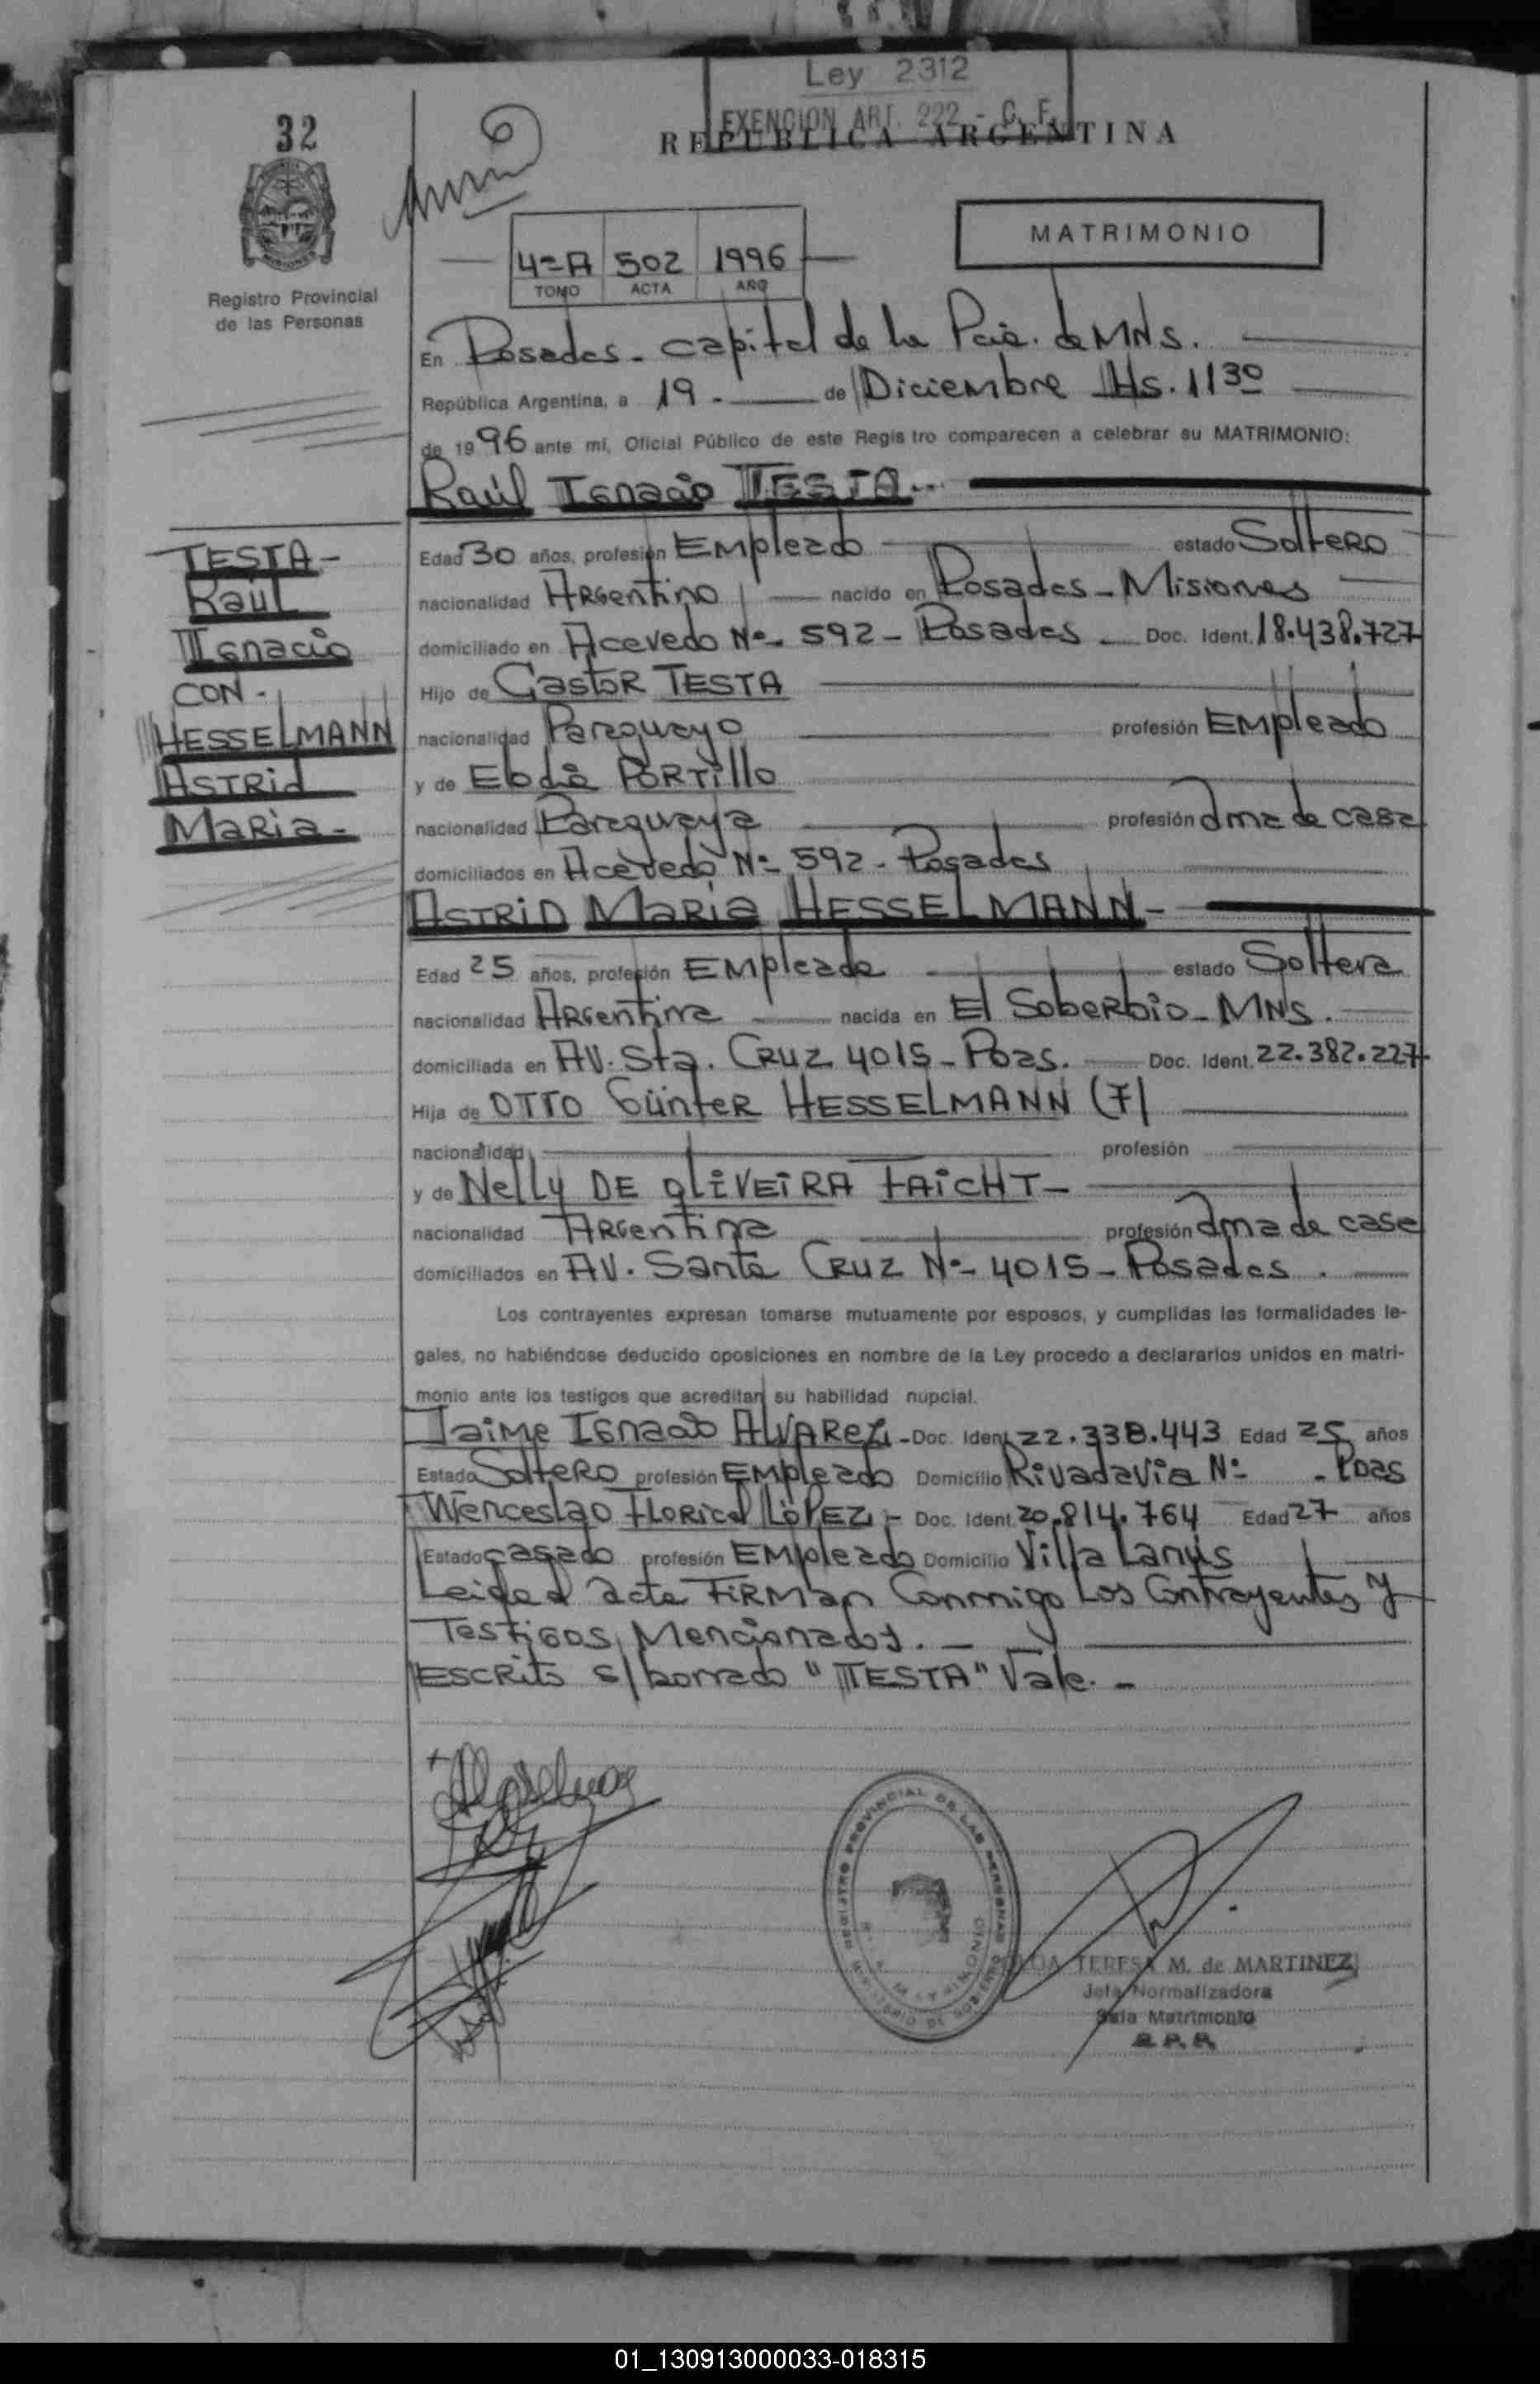 Ley 2312
EXENCION ART. 222 - C. F.
REPUBLICA ARGENTINA
32
MISIONES
Registro Provincial
de las Personas
4º A 502 1996
TOMO ACTA AÑO
MATRIMONIO
En Posadas - capital de la Pcia. de MNS.
República Argentina, a 19 - de Diciembre Hs. 11 30
de 1996 ante mí, Oficial Público de este Registro comparecen a celebrar su MATRIMONIO:
Raúl Ignacio TESTA -
TESTA -
Raúl
Ignacio
CON -
HESSELMANN
ASTRid
MaRia -
Edad 30 años, profesión EMpleado estado SolteRO
nacionalidad ARGentino nacido en Posadas - Misiones
domiciliado en Acevedo Nº 592 - Posadas - Doc. Ident. 18.438.727
Hijo de GastoR TESTA
nacionalidad Paraguayo profesión EMpleado
y de Eboia PORTillo
nacionalidad Paraguaya profesión ama de casa
domiciliados en Acevedo Nº 592 - Posadas
ASTRiD MaRia HESSELMANN -
Edad 25 años, profesión EMpleada estado Soltera
nacionalidad ARGentina nacida en El SobeRbio - MNS.
domiciliada en AV. Sta. CRUZ 4015 - Pdas. Doc. Ident. 22.382.227
Hija de OTTO GünteR HESSELMANN (F)
nacionalidad profesión
y de Nelly DE OLiVEiRA FAiCHT -
nacionalidad ARGentina profesión ama de casa
domiciliados en AV. Santa CRUZ Nº 4015 - Posadas.
Los contrayentes expresan tomarse mutuamente por esposos, y cumplidas las formalidades le-
gales, no habiéndose deducido oposiciones en nombre de la Ley procedo a declararlos unidos en matri-
monio ante los testigos que acreditan su habilidad nupcial.
Jaime IGnacio ALVAREZ - Doc. Ident. 22.338.443 Edad 25 años
Estado SolteRO profesión EMpleado Domicilio Rivadavia Nº - Pdas
Wenceslao FLORical LÓPEZ - Doc. Ident. 20.814.764 Edad 27 años
Estado casado profesión EMpleado Domicilio Villa Lanús
Leida el acta FiRMan Conmigo Los Contrayentes y
Testigos Mencionados. -
ESCRito s/borrado "TESTA" Vale. -
REGISTRO PROVINCIAL DE LAS PERSONAS
MINISTERIO DE GOBIERNO
MATRIMONIO
TERESA M. de MARTINEZ
Jefa Normalizadora
Sala Matrimonio
R.P.P.
01_130913000033-018315